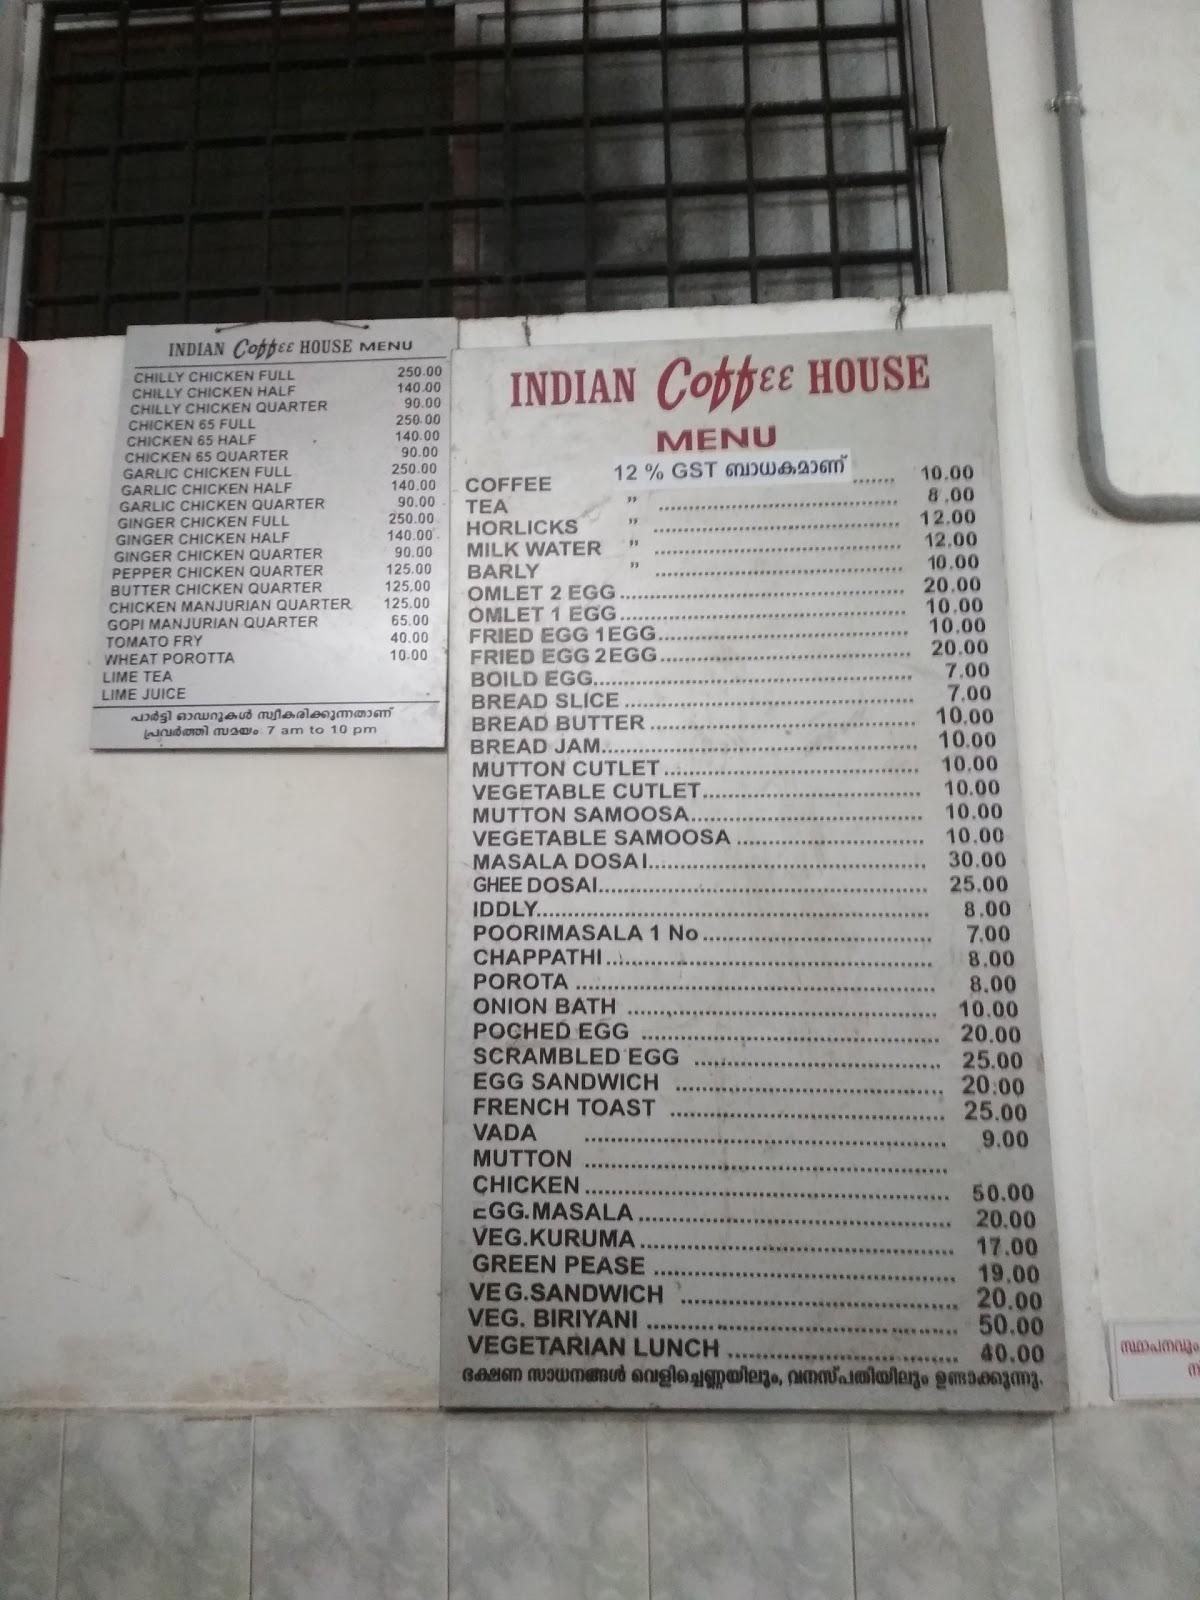 INDIAN Coffee HOUSE MENU
CHILLY CHICKEN FULL 250.00
CHILLY CHICKEN HALF 140.00
CHILLY CHICKEN QUARTER 90.00
CHICKEN 65 FULL 250.00
CHICKEN 65 HALF 140.00
CHICKEN 65 QUARTER 90.00
GARLIC CHICKEN FULL 250.00
GARLIC CHICKEN HALF 140.00
GARLIC CHICKEN QUARTER 90.00
GINGER CHICKEN FULL 250.00
GINGER CHICKEN HALF 140.00
GINGER CHICKEN QUARTER 90.00
PEPPER CHICKEN QUARTER 125.00
BUTTER CHICKEN QUARTER 125.00
CHICKEN MANJURIAN QUARTER 125.00
GOPI MANJURIAN QUARTER 65.00
TOMATO FRY 40.00
WHEAT POROTTA 10.00
LIME TEA
LIME JUICE
പാർട്ടി ഓഡറുകൾ സ്വീകരിക്കുന്നതാണ്
പ്രവർത്തി സമയം 7 am to 10 pm
INDIAN Coffee HOUSE
MENU
12 % GST ബാധകമാണ്
COFFEE ....... 10.00
TEA " ....... 8.00
HORLICKS " ....... 12.00
MILK WATER " ....... 12.00
BARLY " ....... 10.00
OMLET 2 EGG ....... 20.00
OMLET 1 EGG ....... 10.00
FRIED EGG 1EGG ....... 10.00
FRIED EGG 2EGG ....... 20.00
BOILD EGG ....... 7.00
BREAD SLICE ....... 7.00
BREAD BUTTER ....... 10.00
BREAD JAM ....... 10.00
MUTTON CUTLET ....... 10.00
VEGETABLE CUTLET ....... 10.00
MUTTON SAMOOSA ....... 10.00
VEGETABLE SAMOOSA ....... 10.00
MASALA DOSAI ....... 30.00
GHEE DOSAI ....... 25.00
IDDLY ....... 8.00
POORIMASALA 1 No ....... 7.00
CHAPPATHI ....... 8.00
POROTA ....... 8.00
ONION BATH ....... 10.00
POCHED EGG ....... 20.00
SCRAMBLED EGG ....... 25.00
EGG SANDWICH ....... 20.00
FRENCH TOAST ....... 25.00
VADA ....... 9.00
MUTTON .......
CHICKEN ....... 50.00
EGG.MASALA ....... 20.00
VEG.KURUMA ....... 17.00
GREEN PEASE ....... 19.00
VEG.SANDWICH ....... 20.00
VEG. BIRIYANI ....... 50.00
VEGETARIAN LUNCH ....... 40.00
ഭക്ഷണ സാധനങ്ങൾ വെളിച്ചെണ്ണയിലും, വനസ്പതിയിലും ഉണ്ടാക്കുന്നു.
സ്ഥാപനവും